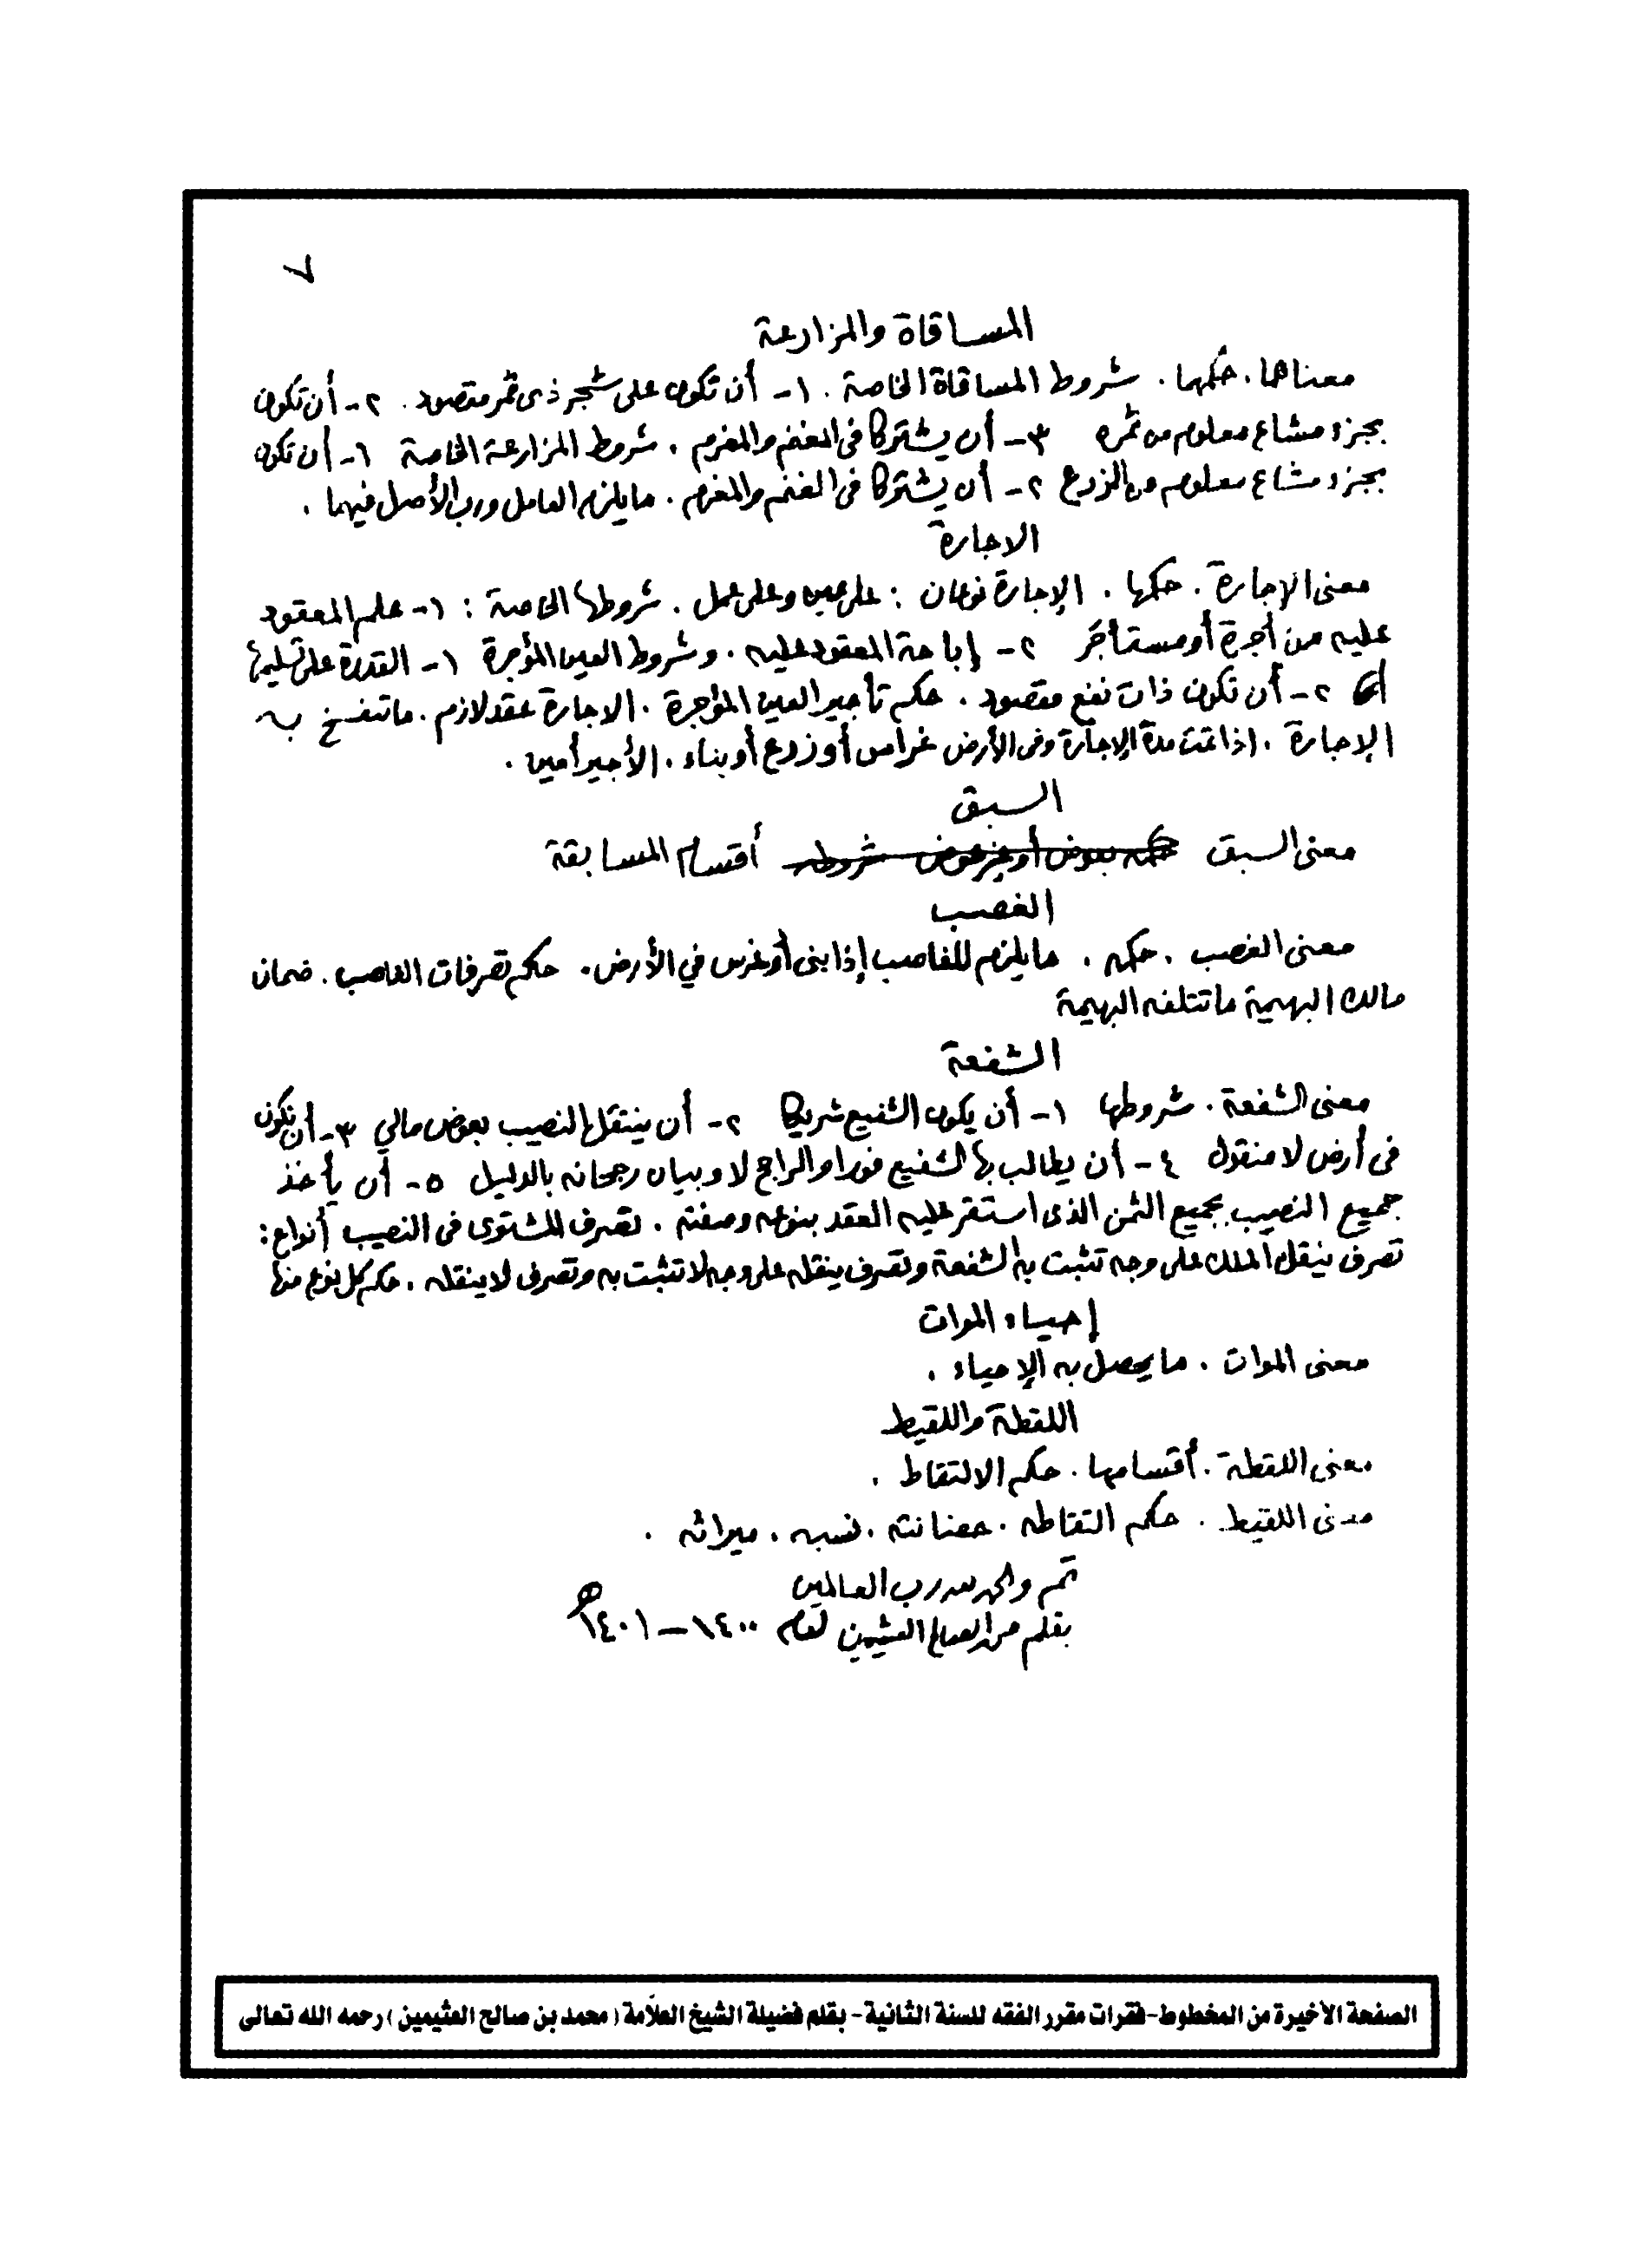 ٧
المساقاة والمزارعة
معناهما . حكمها . شروط المساقاة الخاصة . ١- أن تكون على شجر ذى ثمر مقصود . ٢- أن تكون
بجزء مشاع معلوم من ثمره ٣- أن يشتركا فى المغنم والمغرم . شروط المزارعة الخاصة ١- أن تكون
بجزء مشاع معلوم من الزرع ٢- أن يشتركا فى المغنم والمغرم . ما يلزم العامل ورب الأصل فيهما .
الاجارة
معنى الإجارة . حكمها . الإجارة نوعان : على عين وعلى عمل . شروطها الخاصة : ١- علم المعقود
عليه من أجرة أو مستأجَر ٢- إباحة المعقود عليه . وشروط العين المؤجرة ١- القدرة على تسليمها
٢- أن تكون ذات نفع مقصود . حكم تأجير العين المؤجرة . الاجارة عقد لازم . ما تنفسخ به
الإجارة . اذا تمت مدة الإجارة وفى الأرض غراس أو زرع أو بناء . الأجير أمين .
السبق
معنى السبق حكمه بعوض أو بغير عوض شروطه أقسام المسابقة
الغصب
معنى الغصب . حكمه . ما يلزم الغاصب إذا بنى أو غرس في الأرض . حكم تصرفات الغاصب . ضمان
مالك البهيمة ما تتلفه البهيمة
الشفعة
معنى الشفعة . شروطها ١- أن يكون الشفيع شريكا ٢- أن ينتقل النصيب بعوض مالي ٣- أن تكون
فى أرض لا منقول ٤- أن يطالب بها الشفيع فورا والراجح لا وبيان رجحانه بالدليل ٥- أن يأخذ
جميع النصيب بجميع الثمن الذى استقر عليه العقد بنوعه وصفته . تصرف المشترى فى النصيب أنواع :
تصرف ينقل الملك على وجه تثبت به الشفعة وتصرف ينقله على وجه لا تثبت به وتصرف لا ينقله . حكم كل نوع منها
إحياء الموات
معنى الموات . ما يحصل به الإحياء .
اللقطة واللقيط
معنى اللقطة . أقسامها . حكم الالتقاط .
معنى اللقيط . حكم التقاطه . حضانته . نسبه . ميراثه .
تم والحمد لله رب العالمين
بقلم محمد الصالح العثيمين لعام ١٤٠٠ – ١٤٠١هـ
الصفحة الأخيرة من المخطوط-فقرات مقرر الفقه للسنة الثانية - بقلم فضيلة الشيخ العلاّمة (محمد بن صالح العثيمين) رحمه الله تعالى